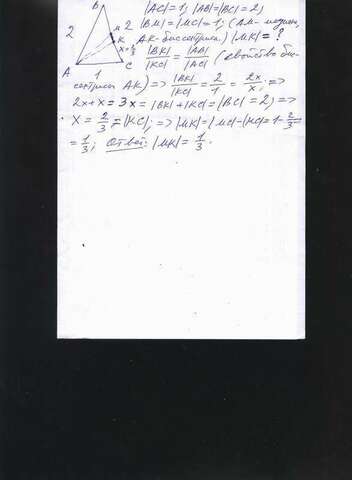 |AC|=1; |AB|=|BC|=2;
|BM|=|MC|=1; (AM- медиана,
AK-биссектриса.) |MK|=?
|BK|/|KC| = |AB|/|AC| (свойство бис-
сектрисы AK) => |BK|/|KC| = 2/1 = 2x/x; =>
2x+x=3x=|BK|+|KC|=|BC|=2) =>
x = 2/3 = |KC|; => |MK|=|MC|-|KC|=1-2/3=
= 1/3; Ответ: |MK| = 1/3.
B
2
M 2
K
x=2/3
A
1
C